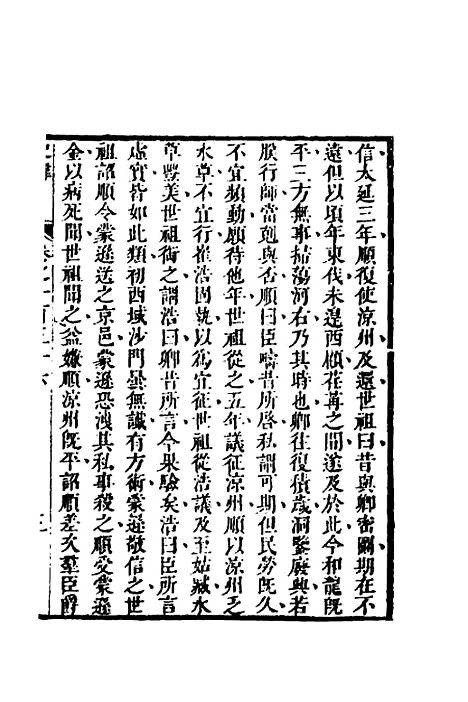 信太延三年順復使涼州及還世祖曰昔與卿密圖期在不
遠但以頃年東伐未遑西顧荏苒之間遂及於此今和龍旣
平三方無事掃蕩河右乃其時也卿往復積歲洞鑒廢興若
朕行師當剋與否順曰臣疇昔所啓私謂可期但民勞旣久
不宜頻動願待他年世祖從之五年議征涼州順以涼州乏
水草不宜行崔浩固執以爲宜征世祖從浩議及至姑臧水
草豐美世祖銜之謂浩曰卿昔所言今果驗矣浩曰臣所言
虛實皆如此類初西域沙門曇無讖有方術蒙遜敬信之世
祖詔順令蒙遜送之京邑蒙遜恐洩其私事殺之順受蒙遜
金以病死聞世祖聞之益嫌順涼州旣平詔順差次羣臣爵